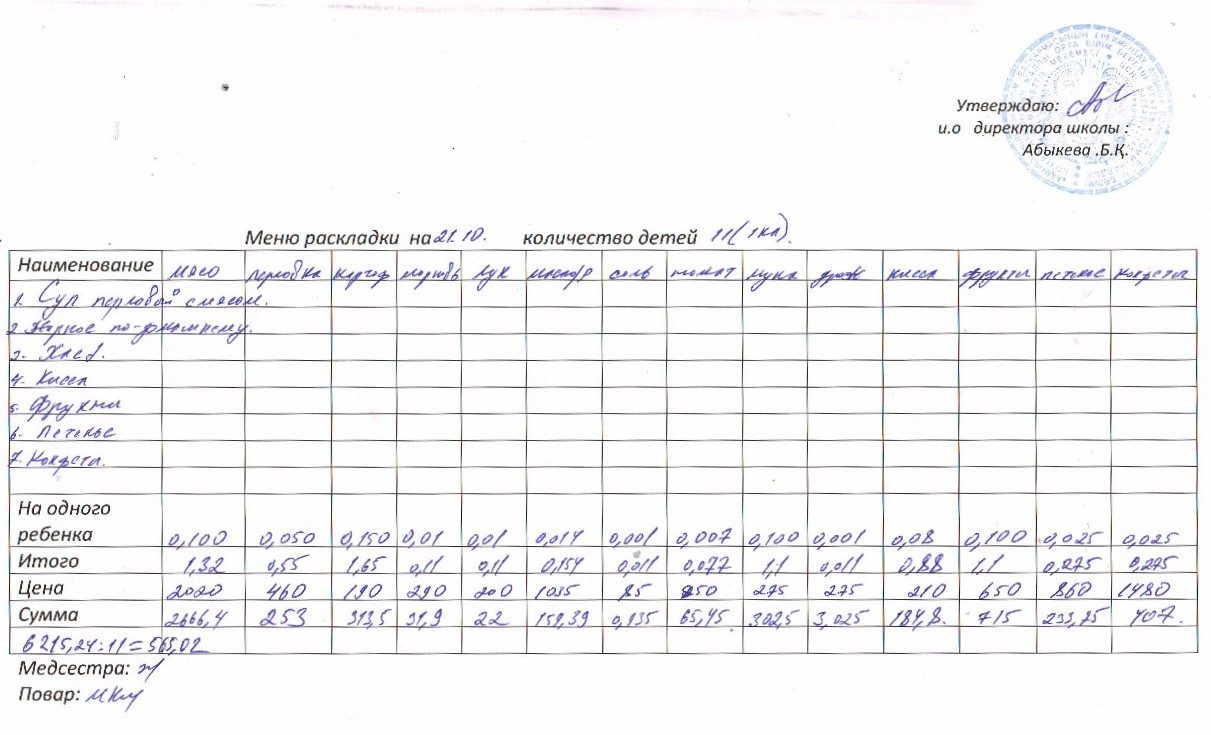 Утверждаю:
и.о директора школы :
Абыкева .Б.Қ.
Меню раскладки на 21.10. количество детей 11(1кл).
Наименование мясо перловка картоф морковь лук масло соль томат мука дрож кисел фрукты печенье конфеты
1. Суп перловый с мясом.
2 Жаркое по-домашнему.
3. Хлеб.
4. Кисел
5. Фрукты
6. Печенье
7. Конфеты.
На одного
ребенка 0,100 0,050 0,150 0,01 0,01 0,014 0,001 0,007 0,100 0,001 0,08 0,100 0,025 0,025
Итого 1,32 0,55 1,65 0,11 0,11 0,154 0,011 0,077 1,1 0,011 0,88 1,1 0,275 0,275
Цена 2020 460 190 290 200 1035 85 850 275 275 210 650 860 1480
Сумма 2666,4 253 313,5 31,9 22 159,39 0,935 65,45 302,5 3,025 184,8. 715 233,75 407.
6215,24:11=565,02
Медсестра:
Повар: